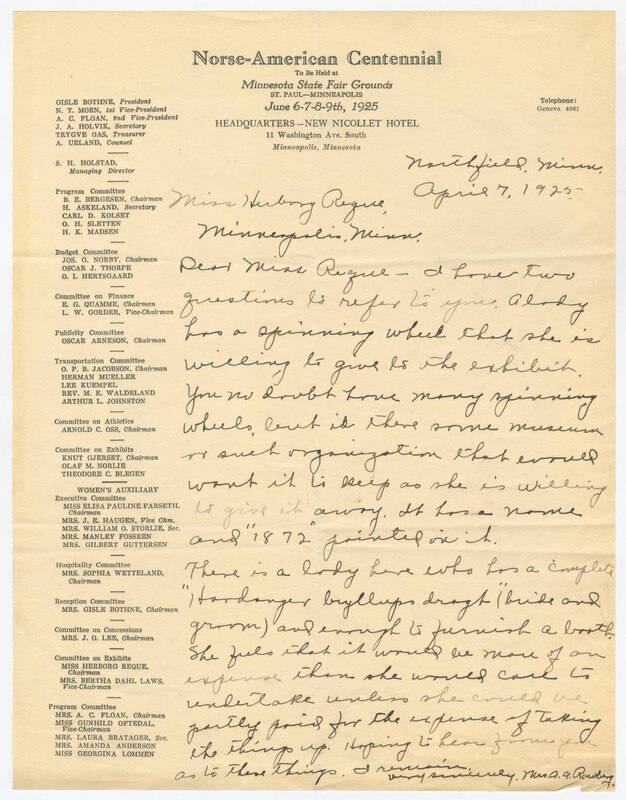 Norse-American Centennial
To Be Held at
Minnesota State Fair Grounds
ST. PAUL—MINNEAPOLIS
June 6-7-8-9th, 1925
HEADQUARTERS—NEW NICOLLET HOTEL
11 Washington Ave. South
Minneapolis, Minnesota
Telephone:
Geneva 4661
GISLE BOTHNE, President
N. T. MOEN, 1st Vice-President
A. C. FLOAN, 2nd Vice-President
J. A. HOLVIK, Secretary
TRYGVE OAS, Treasurer
A. UELAND, Counsel
S. H. HOLSTAD,
Managing Director
Program Committee
B. E. BERGESEN, Chairman
H. ASKELAND, Secretary
CARL D. KOLSET
O. H. SLETTEN
H. K. MADSEN
Budget Committee
JOS. G. NORBY, Chairman
OSCAR J. THORPE
O. I. HERTSGAARD
Committee on Finance
E. G. QUAMME, Chairman
L. W. GORDER, Vice-Chairman
Publicity Committee
OSCAR ARNESON, Chairman
Transportation Committee
O. P. B. JACOBSON, Chairman
HERMAN MUELLER
LEE KUEMPEL
REV. M. E. WALDELAND
ARTHUR L. JOHNSTON
Committee on Athletics
ARNOLD C. OSS, Chairman
Committee on Exhibits
KNUT GJERSET, Chairman
OLAF M. NORLIE
THEODORE C. BLEGEN
WOMEN'S AUXILIARY
Executive Committee
MISS ELISA PAULINE FARSETH,
Chairman
MRS. J. E. HAUGEN, Vice Chm.
MRS. WILLIAM O. STORLIE, Sec.
MRS. MANLEY FOSSEEN
MRS. GILBERT GUTTERSEN
Hospitality Committee
MRS. SOPHIA WETTELAND,
Chairman
Reception Committee
MRS. GISLE BOTHNE, Chairman
Committee on Concessions
MRS. J. O. LEE, Chairman
Committee on Exhibits
MISS HERBORG REQUE,
Chairman
MRS. BERTHA DAHL LAWS,
Vice-Chairman
Program Committee
MRS. A. C. FLOAN, Chairman
MISS GUNHILD OFTEDAL,
Vice-Chairman
MRS. LAURA BRATAGER, Sec.
MRS. AMANDA ANDERSON
MISS GEORGINA LOMMEN
Northfield, Minn.
April 7, 1925.
Miss Herborg Reque,
Minneapolis, Minn.
Dear Miss Reque – I have two
questions to refer to you. A lady
has a spinning wheel that she is
willing to give to the exhibit.
You no doubt have many spinning
wheels, but is there some museum
or such organization that would
want it to keep as she is willing
to give it away. It has a name
and "1872" painted on it.
There is a lady here who has a complete
"Hardanger bryllups dragt" (bride and
groom) and enough to furnish a booth.
She feels that it would be more of an
expense than she would care to
undertake unless she could be
partly paid for the expense of taking
the things up. Hoping to hear from you
as to these things. I remain,
very sincerely, Mrs. A. A. Rowberg